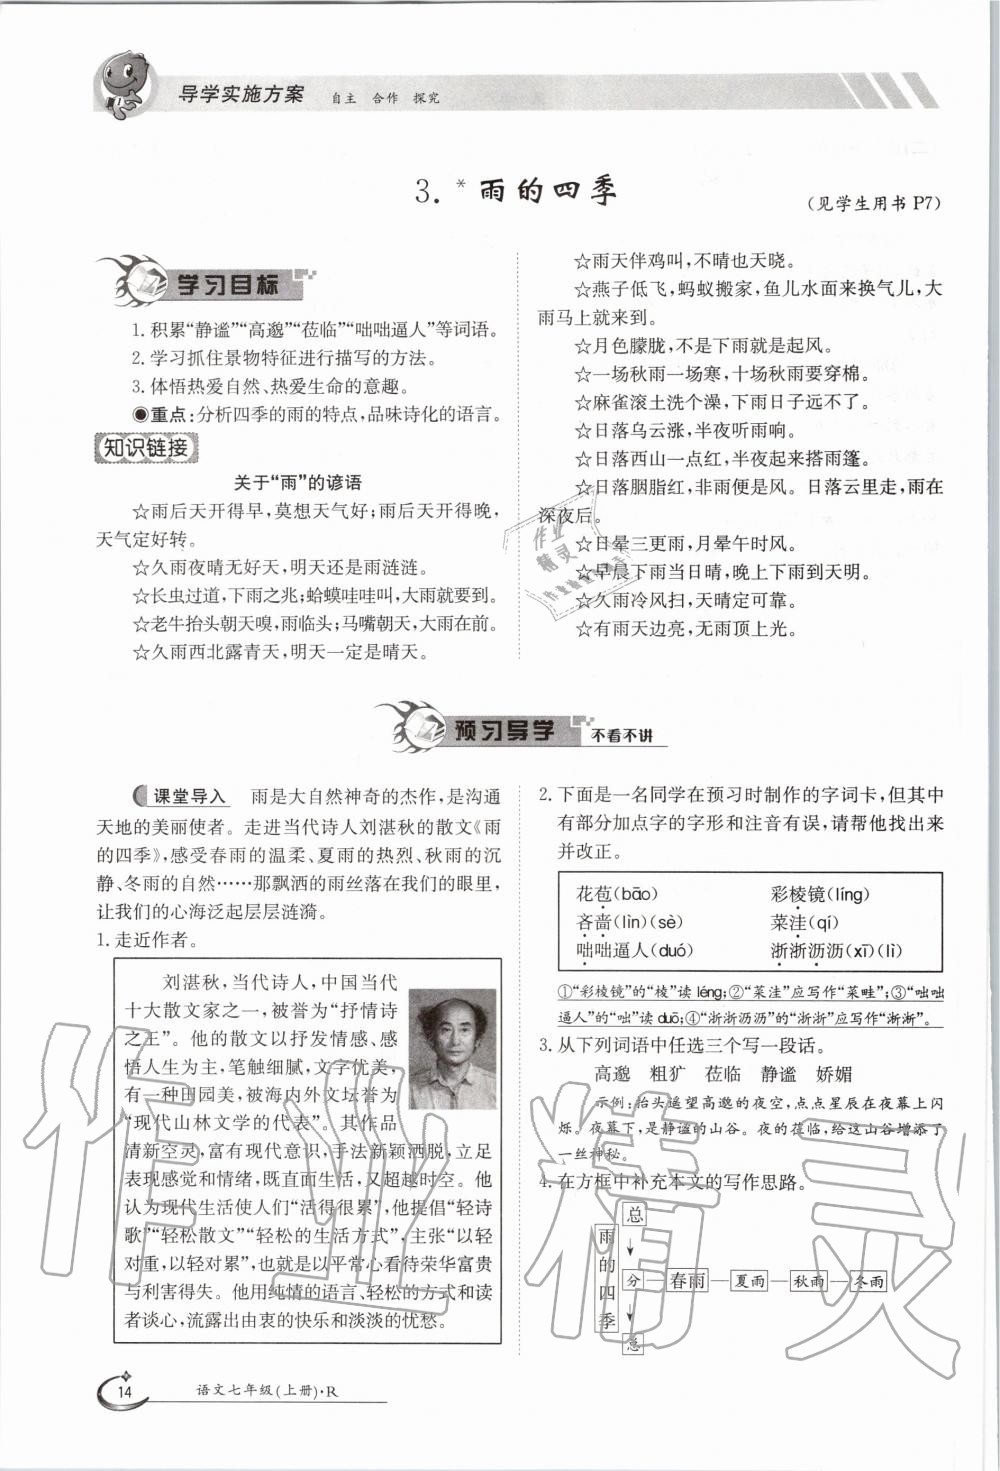 导学实施方案 自主 合作 探究
3.*雨的四季
(见学生用书 P7)
学习目标
1. 积累“静谧”“高邈”“莅临”“咄咄逼人”等词语。
2. 学习抓住景物特征进行描写的方法。
3. 体悟热爱自然、热爱生命的意趣。
◉重点:分析四季的雨的特点,品味诗化的语言。
知识链接
关于“雨”的谚语
☆雨后天开得早,莫想天气好;雨后天开得晚,
天气定好转。
☆久雨夜晴无好天,明天还是雨涟涟。
☆长虫过道,下雨之兆;蛤蟆哇哇叫,大雨就要到。
☆老牛抬头朝天嗅,雨临头;马嘴朝天,大雨在前。
☆久雨西北露青天,明天一定是晴天。
☆雨天伴鸡叫,不晴也天晓。
☆燕子低飞,蚂蚁搬家,鱼儿水面来换气儿,大
雨马上就来到。
☆月色朦胧,不是下雨就是起风。
☆一场秋雨一场寒,十场秋雨要穿棉。
☆麻雀滚土洗个澡,下雨日子远不了。
☆日落乌云涨,半夜听雨响。
☆日落西山一点红,半夜起来搭雨篷。
☆日落胭脂红,非雨便是风。日落云里走,雨在
深夜后。
☆日晕三更雨,月晕午时风。
☆早晨下雨当日晴,晚上下雨到天明。
☆久雨冷风扫,天晴定可靠。
☆有雨天边亮,无雨顶上光。
预习导学 不看不讲
课堂导入 雨是大自然神奇的杰作,是沟通
天地的美丽使者。走进当代诗人刘湛秋的散文《雨
的四季》,感受春雨的温柔、夏雨的热烈、秋雨的沉
静、冬雨的自然……那飘洒的雨丝落在我们的眼里,
让我们的心海泛起层层涟漪。
1. 走近作者。
刘湛秋,当代诗人,中国当代
十大散文家之一,被誉为“抒情诗
之王”。他的散文以抒发情感、感
悟人生为主,笔触细腻,文字优美,
有一种田园美,被海内外文坛誉为
“现代山林文学的代表”。其作品
清新空灵,富有现代意识,手法新颖洒脱,立足
表现感觉和情绪,既直面生活,又超越时空。他
认为现代生活使人们“活得很累”,他提倡“轻诗
歌”“轻松散文”“轻松的生活方式”,主张“以轻
对重,以轻对累”,也就是以平常心看待荣华富贵
与利害得失。他用纯情的语言、轻松的方式和读
者谈心,流露出由衷的快乐和淡淡的忧愁。
2. 下面是一名同学在预习时制作的字词卡,但其中
有部分加点字的字形和注音有误,请帮他找出来
并改正。
花苞(bāo) 彩棱镜(líng)
吝啬(lìn)(sè) 菜洼(qí)
咄咄逼人(duó) 浙浙沥沥(xī)(lì)
①“彩棱镜”的“棱”读 léng;②“菜洼”应写作“菜畦”;③“咄咄
逼人”的“咄”读 duō;④“浙浙沥沥”的“浙浙”应写作“淅淅”。
3. 从下列词语中任选三个写一段话。
高邈 粗犷 莅临 静谧 娇媚
示例:抬头遥望高邈的夜空,点点星辰在夜幕上闪
烁。夜幕下,是静谧的山谷。夜的莅临,给这山谷增添了
一丝神秘。
4. 在方框中补充本文的写作思路。
雨的四季
总
分 春雨 夏雨 秋雨 冬雨
总
14 语文七年级(上册)·R
作业精灵